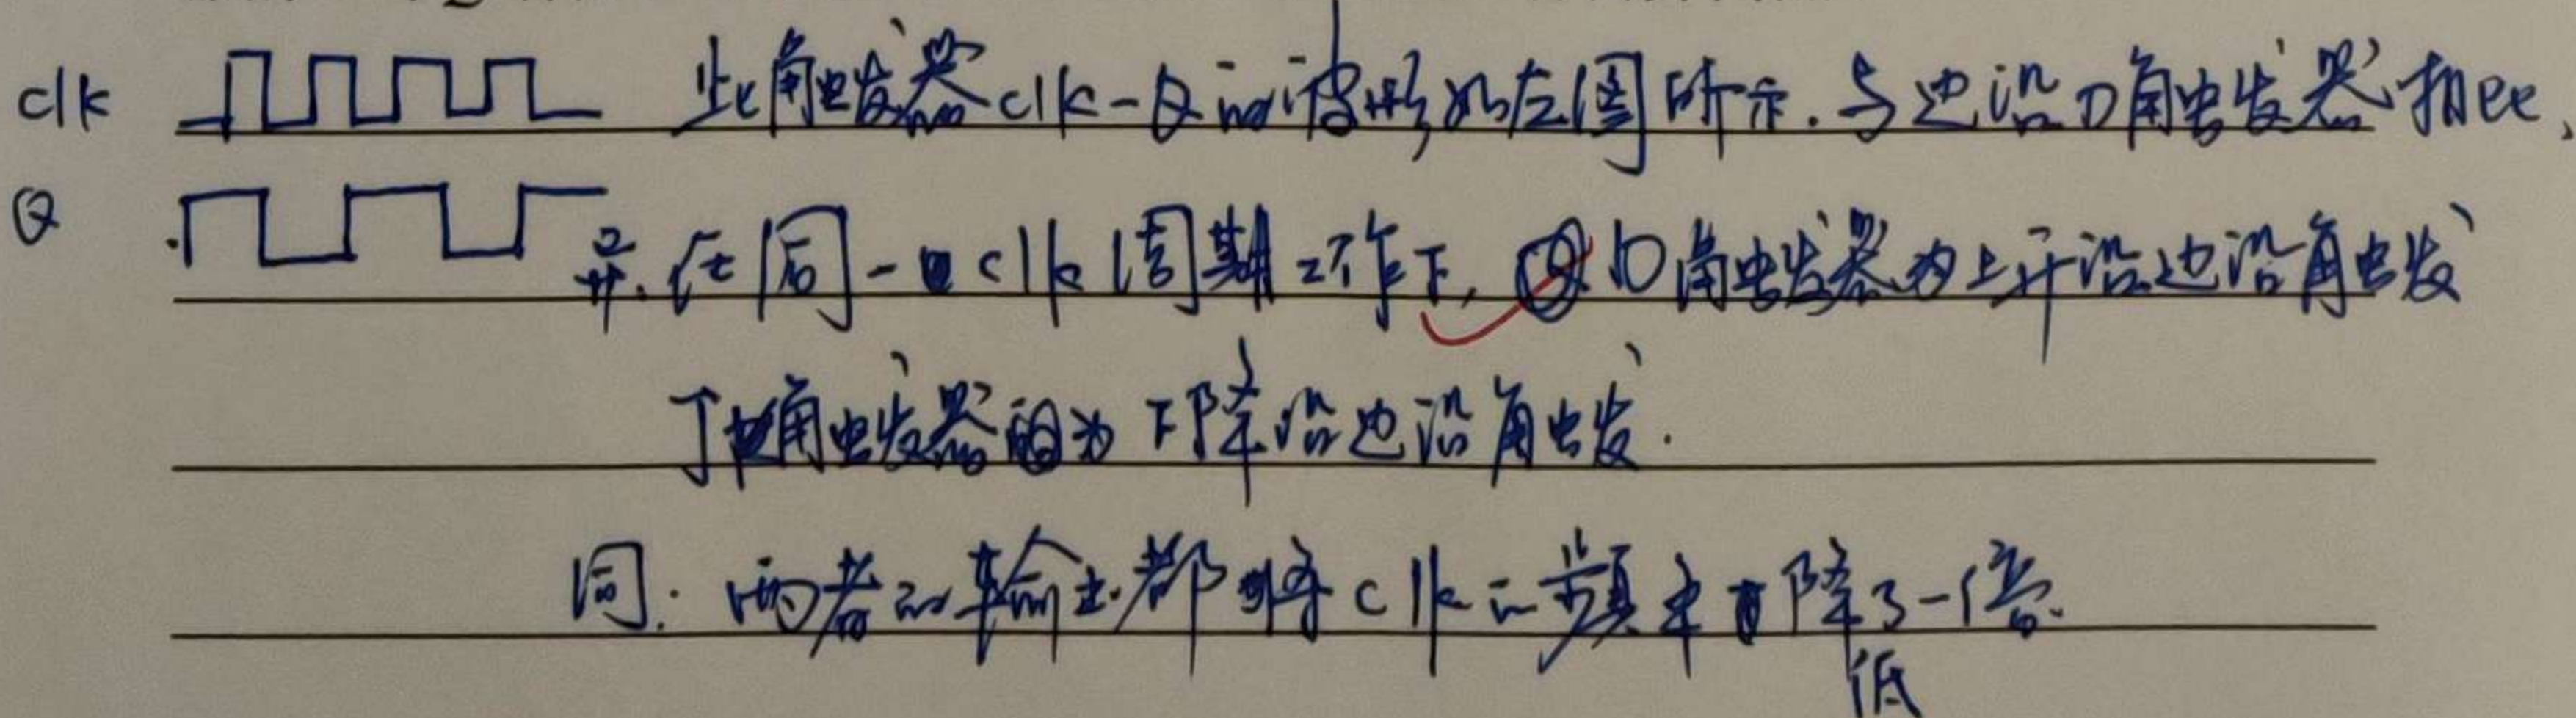 clk 此触发器clk-Q的波形如左图所示.与边沿D触发器相比,
Q 异.在同一clk周期工作下,D触发器为上升沿边沿触发
T触发器为下降沿边沿触发.
同:两者的输出都将clk的频率降低了一倍.